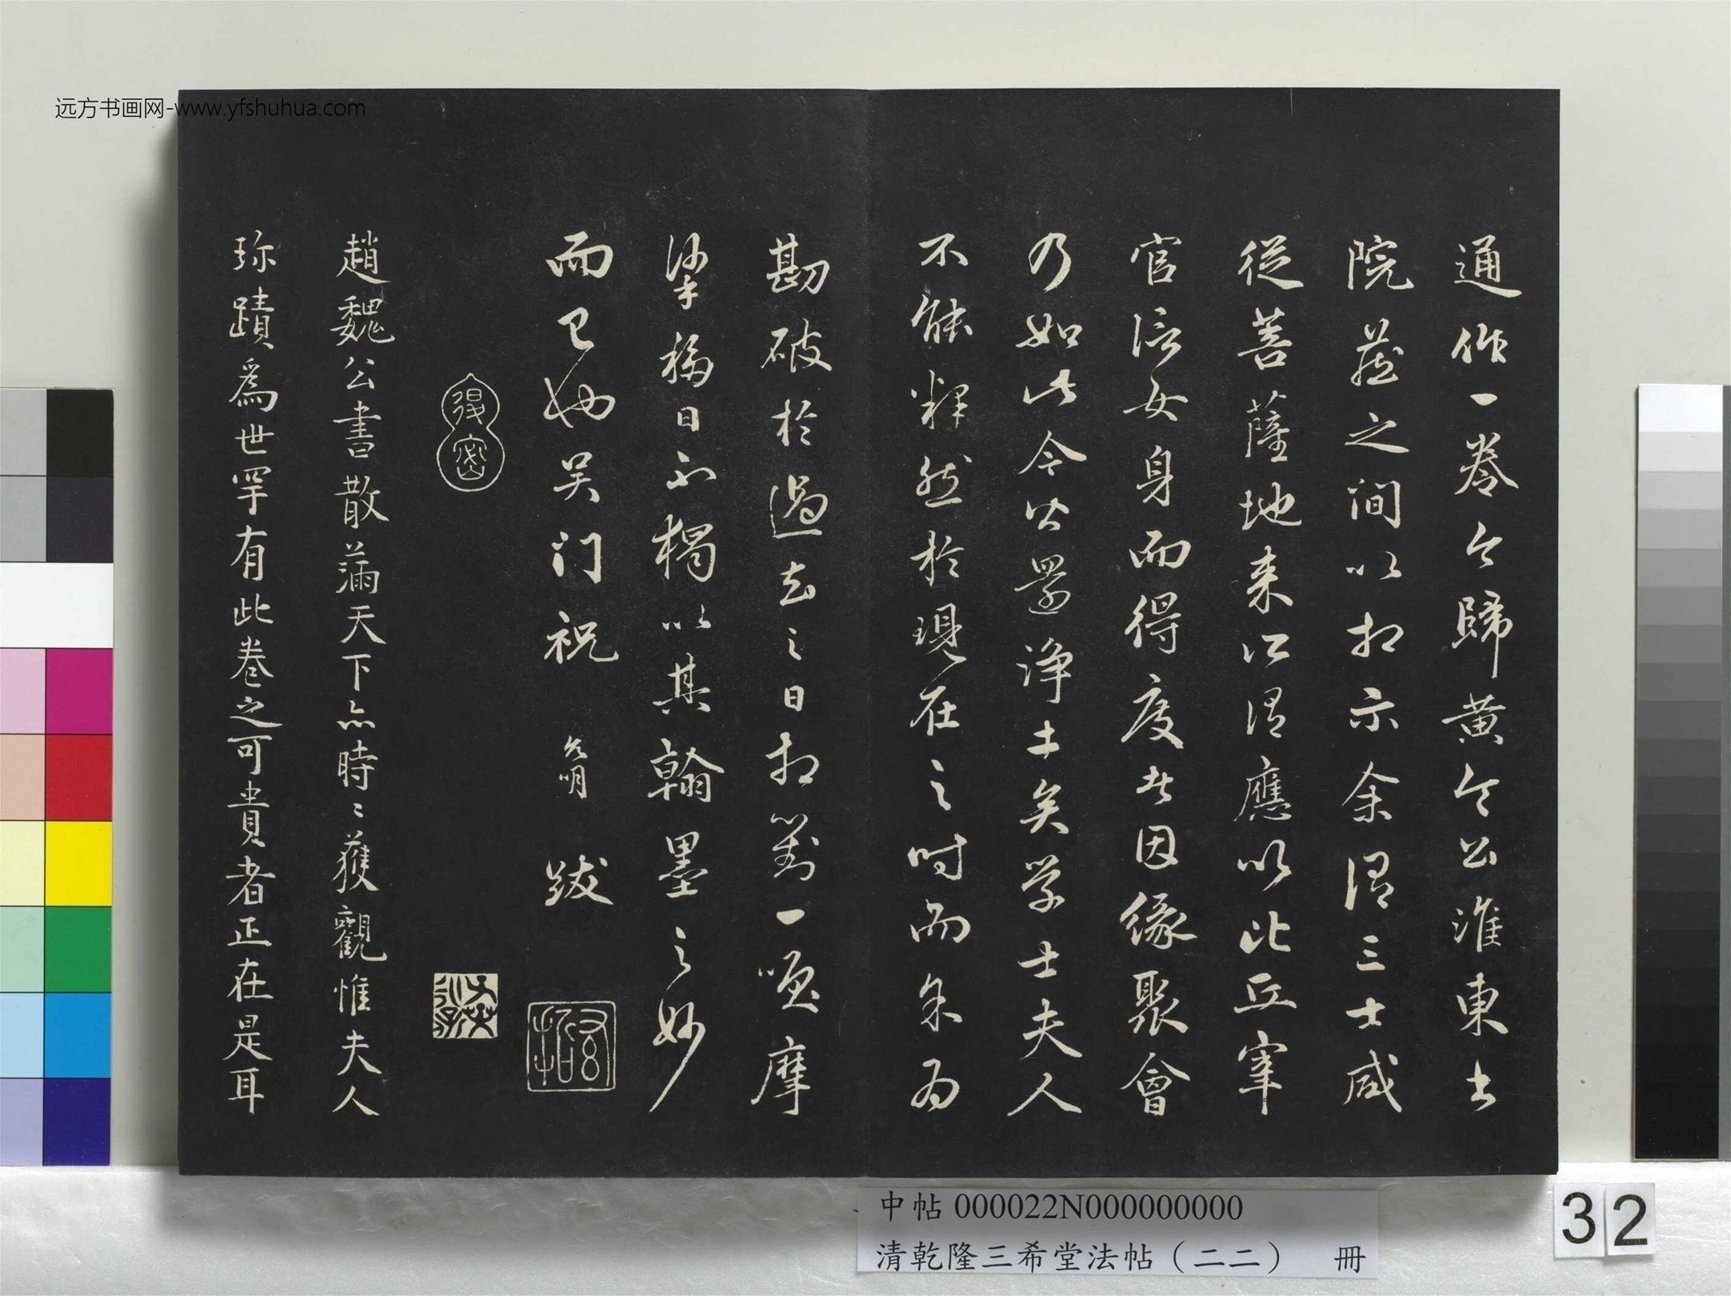 远方书画网-www.yfshuhua.com
通作一卷今歸黄令公淮東書
院藏之间以相示余谓三士咸
從菩薩地来江谓應以比丘宰
官信女身而得度者因緣聚會
乃如此今公還浄土矣学士夫人
不能釋然於現在之时而余为
勘破於過去之日相對一噱摩
挲橅日不獨以其翰墨之妙
而已也吴门祝允明跋
得密
趙魏公書散滿天下亦時〻獲觀惟夫人
珎蹟爲世罕有此卷之可貴者正在是耳
中帖 000022N000000000
清乾隆三希堂法帖（二二） 冊
32